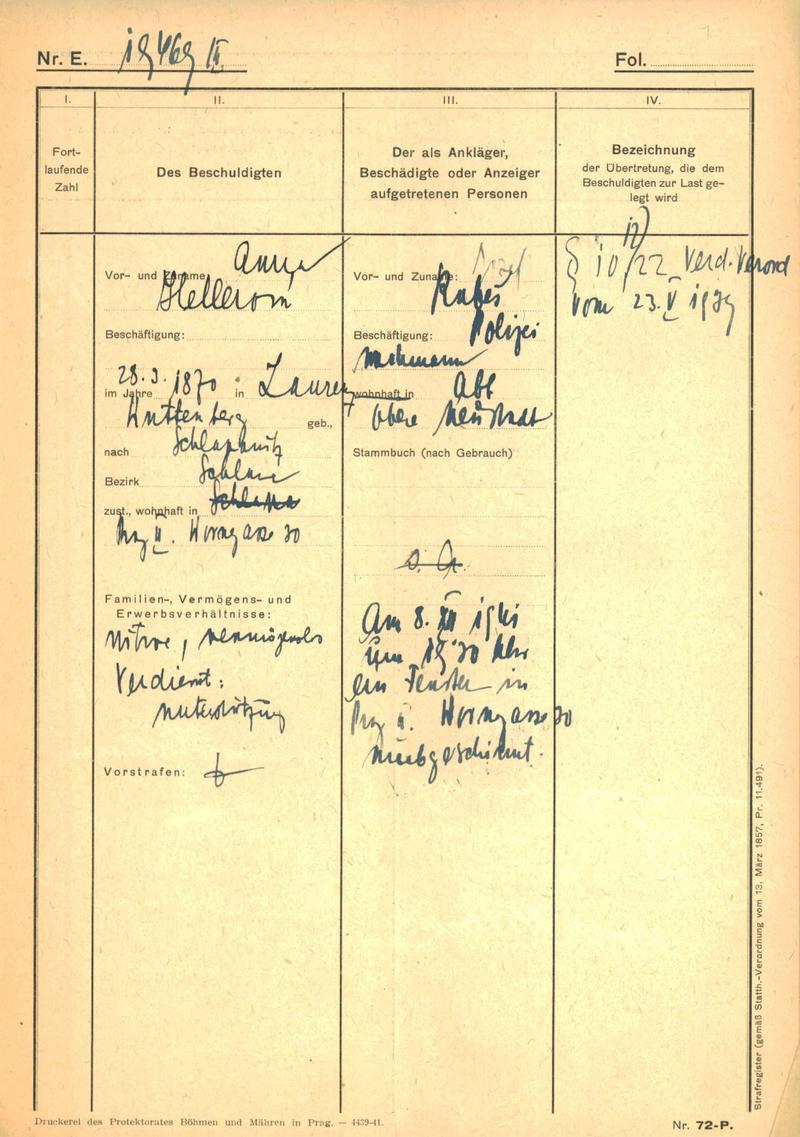 Nr. E. 19469 II
Fol.
I.
II.
III.
IV.
Fort-
laufende
Zahl
Des Beschuldigten
Der als Ankläger,
Beschädigte oder Anzeiger
aufgetretenen Personen
Bezeichnung
der Übertretung, die dem
Beschuldigten zur Last ge-
legt wird
Vor- und Zuname Anna
Hellerová
Beschäftigung:
28.3. 1870
im Jahre in
Kuttenberg geb.,
nach
Bezirk Schlan
zust., wohnhaft in
Prag II.
30
Familien-, Vermögens- und
Erwerbsverhältnisse:
Witwe, vermögenslos
Verdient:
Unterstützung
Vorstrafen:
Vor- und Zuname: Josef
Beschäftigung: Polizei
wohnhaft in Abt
Obere Neustadt
Stammbuch (nach Gebrauch)
S. G.
Am 8. XII 1941
um 19 30 Uhr
ein Fenster in
Prag II. 30
§ 10/22 Verd. Verord
vom 23. V 1939
Strafregister (gemäß Statth.-Verordnung vom 13. März 1857, Pr. 11.491).
Druckerei des Protektorates Böhmen und Mähren in Prag. — 4439-41.
Nr. 72-P.